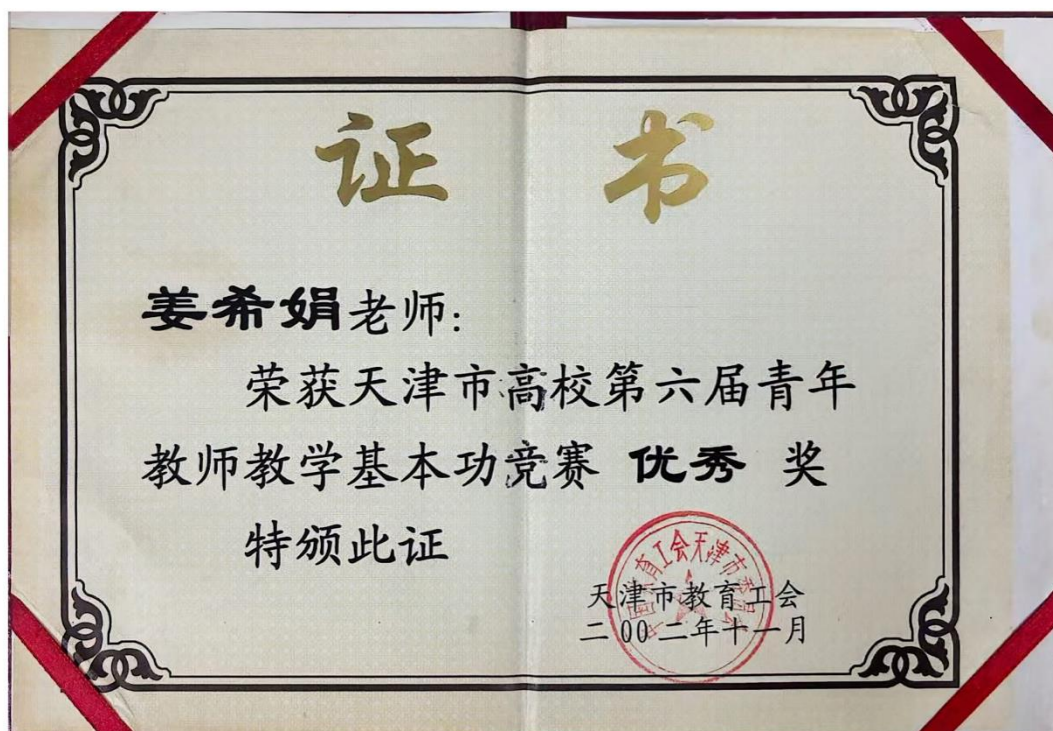 证 书
姜希娟老师:
荣获天津市高校第六届青年
教师教学基本功竞赛 优秀 奖
特颁此证
中国教育工会天津市委员会
天津市教育工会
二00二年十一月